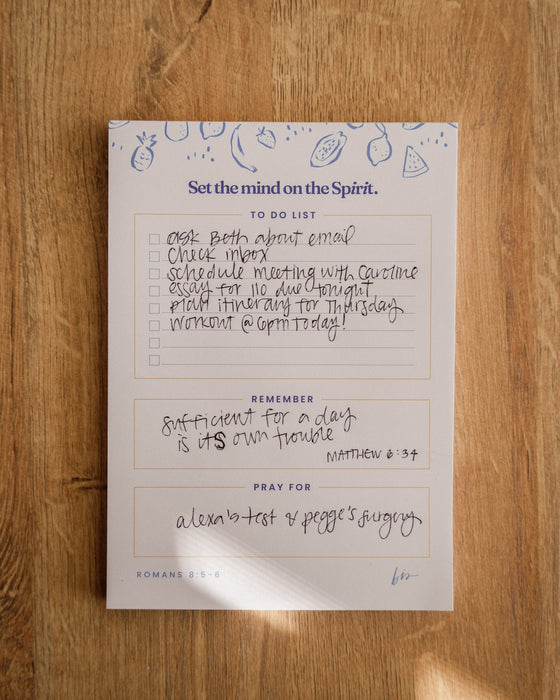 Set the mind on the Spirit.
TO DO LIST
ask Beth about email
check inbox
schedule meeting with Caroline
essay for 110 due tonight
plan itinerary for Thursday
workout @ 6pm today!
REMEMBER
sufficient for a day
is itS own trouble
MATTHEW 6:34
PRAY FOR
alexa's test & pegge's surgery
ROMANS 8:5-6